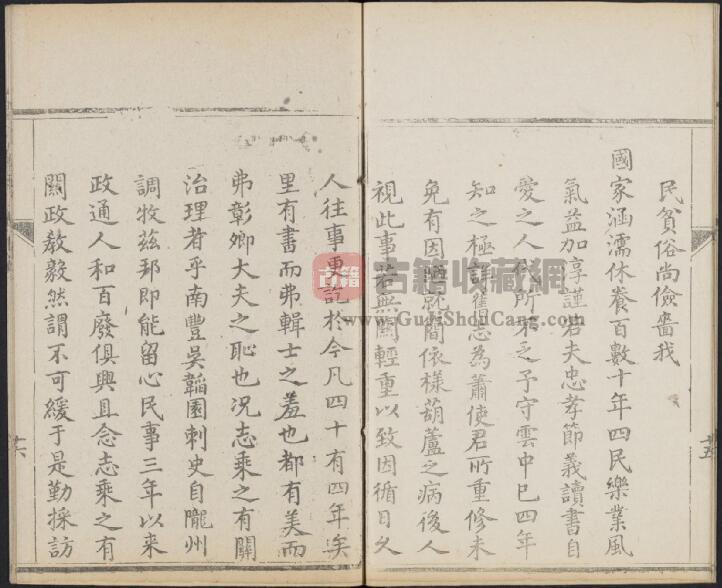 民貧俗尚儉嗇我
國家涵濡休養百數十年四民樂業風
氣益加淳謹若夫忠孝節義讀書自
愛之人代所不乏予守雲中巳四年
知之極詳舊志為蕭使君所重修未
免有因陋就簡依樣葫蘆之病後人
視此事若無關輕重以致因循日久
十五
人往事更訖於今凡四十有四年矣
里有書而弗輯士之羞也都有美而
弗彰鄉大夫之恥也况志乘之有關
治理者乎南豐吳韜園刺史自隴州
調牧茲邦即能留心民事三年以來
政通人和百廢俱興且念志乘之有
關政敎毅然謂不可緩于是勤採訪
十六
古籍
古籍收藏网
www.GuJiShouCang.com